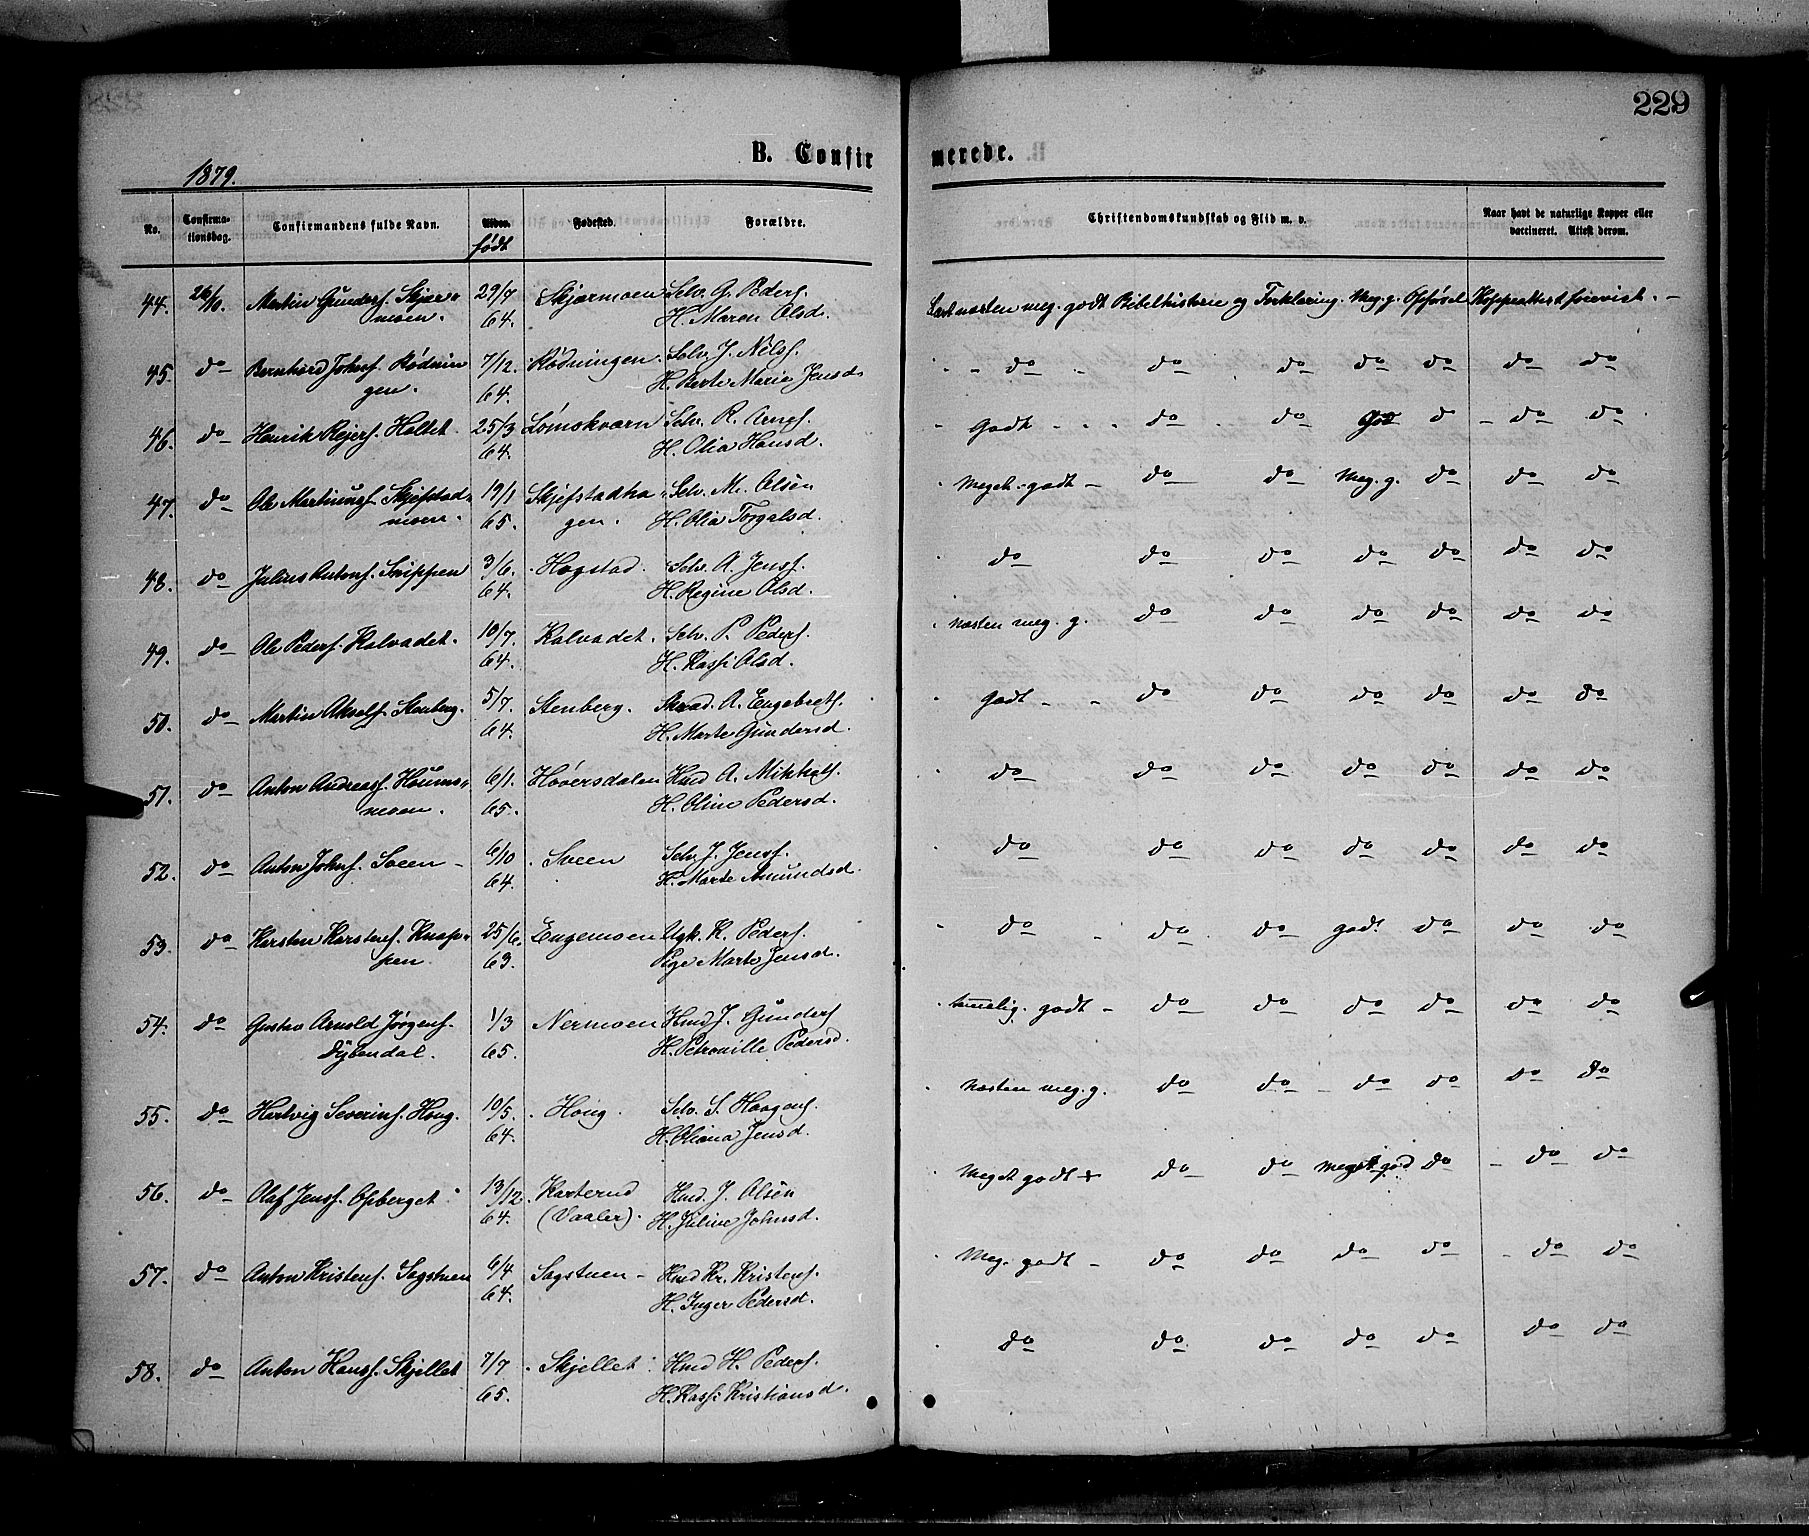 229
B. Confirmerede.
1879.
No. Confirmationsdag. Confirmandens fulde Navn. Alder. født Fødested. Forældre. Christendomskundskab og Flid m. v. Naar havt de naturlige Kopper eller vaccineret. Attest derom.
44. 26/10. Martin Gunders. Skjær- 29/7 Skjærmoen Selv. G. Peders. Læst næsten meg. godt Bibelhistorie og Forklaring. Meg. g. Opførsel Koppeattest forevist.
moen. 64. H. Maren Olsd.
45. do Bernhard Johns. Rødnin 7/12. Rødningen. Selv. J. Nils. do do do do do do do
gen. 64. H. Berte Marie Jensd.
46. do Henrik Rejers. Hollet. 25/3 Lømokværn Selv. R. Arnes. Godt do do God do do do
64. H. Olia Hansd.
47. do Ole Martinus. Skjefstad- 19/1 Skjefstadha Selv. M. Olsen Meget godt do do Meg. g. do do do
moen. 65. gen. H. Olia Torgalsd.
48. do Julius Antons. Snippen 3/6. Hogstad. Selv. A. Jenss. do do do do do do do
64. H. Regine Olsd.
49. do Ole Peders. Kalvadet. 10/7. Kalvadet. Selv. P. Peders. næsten meg. g. do do do do do do
64. H. Kasp. Olsd.
50. do Martin Akselss. Stenberg. 5/7. Stenberg. A. Engebrets. Godt do do do do do do
64. H. Marte Gundersd.
51. do Anton Andreass. Houms- 6/1. Høversdalen Hmd A. Mikkels. do do do do do do do
moen. 65. H. Oline Pedersd.
52. do Anton Johns. Sveen 6/10 Sveen Selv. J. Jenss. do do do do do do do
64. H. Marte Amundsd.
53. do Karsten Karstens. Knap- 25/6. Engemoen Ugk. K. Peders. do do do godt do do do
pen. 63. Pige Marte Jensd.
54. do Gustav Arnold Jørgens. 1/3 Nermoen Hmd J. Gunders temmelig godt do do do do do do
Dybendal. 65. H. Petronille Pedersd.
55. do Hartvig Severins. Houg. 10/5. Houg. Selv. S. Haagens. Næsten meg. g. do do do do do do
64. H. Oliana Jensd.
56. do Olaf Jenss. Opberget 13/12. Karterud Hmd. J. Olsen Meget godt do do meget god do do do
64. (Vaaler). H. Juline Johnsd.
57. do Anton Kristens. Sagstuen 6/4 Sagstuen Hmd Kr. Kristens. Meg. godt do do do do do do
64. H. Inger Pedersd.
58. do Anton Hanss. Skjellet 7/7 Skjellet Hmd H. Peders. do do do do do do do
65. H. Kasp. Kristiansd.